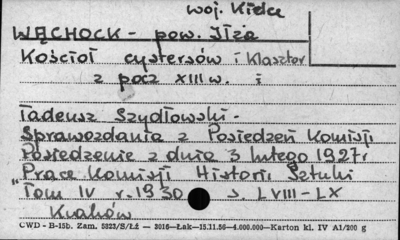 woj. Kielce
WĄCHOCK - pow. Iłża
Kościół cystersów i Klasztor
z pocz XIII w. i
Tadeusz Szydłowski -
Sprawozdania z Posiedzeń Komisji
Posiedzenie z dnia 3 lutego 1927 r
"Prace Komisji Historii Sztuki
Tom IV r. 1930 s. LVIII-LX
Kraków
CWD - B-15b. Zam. 5823/S/Łź — 3016—Łak—15.11.56—4.000.000—Karton kl. IV A1/200 g